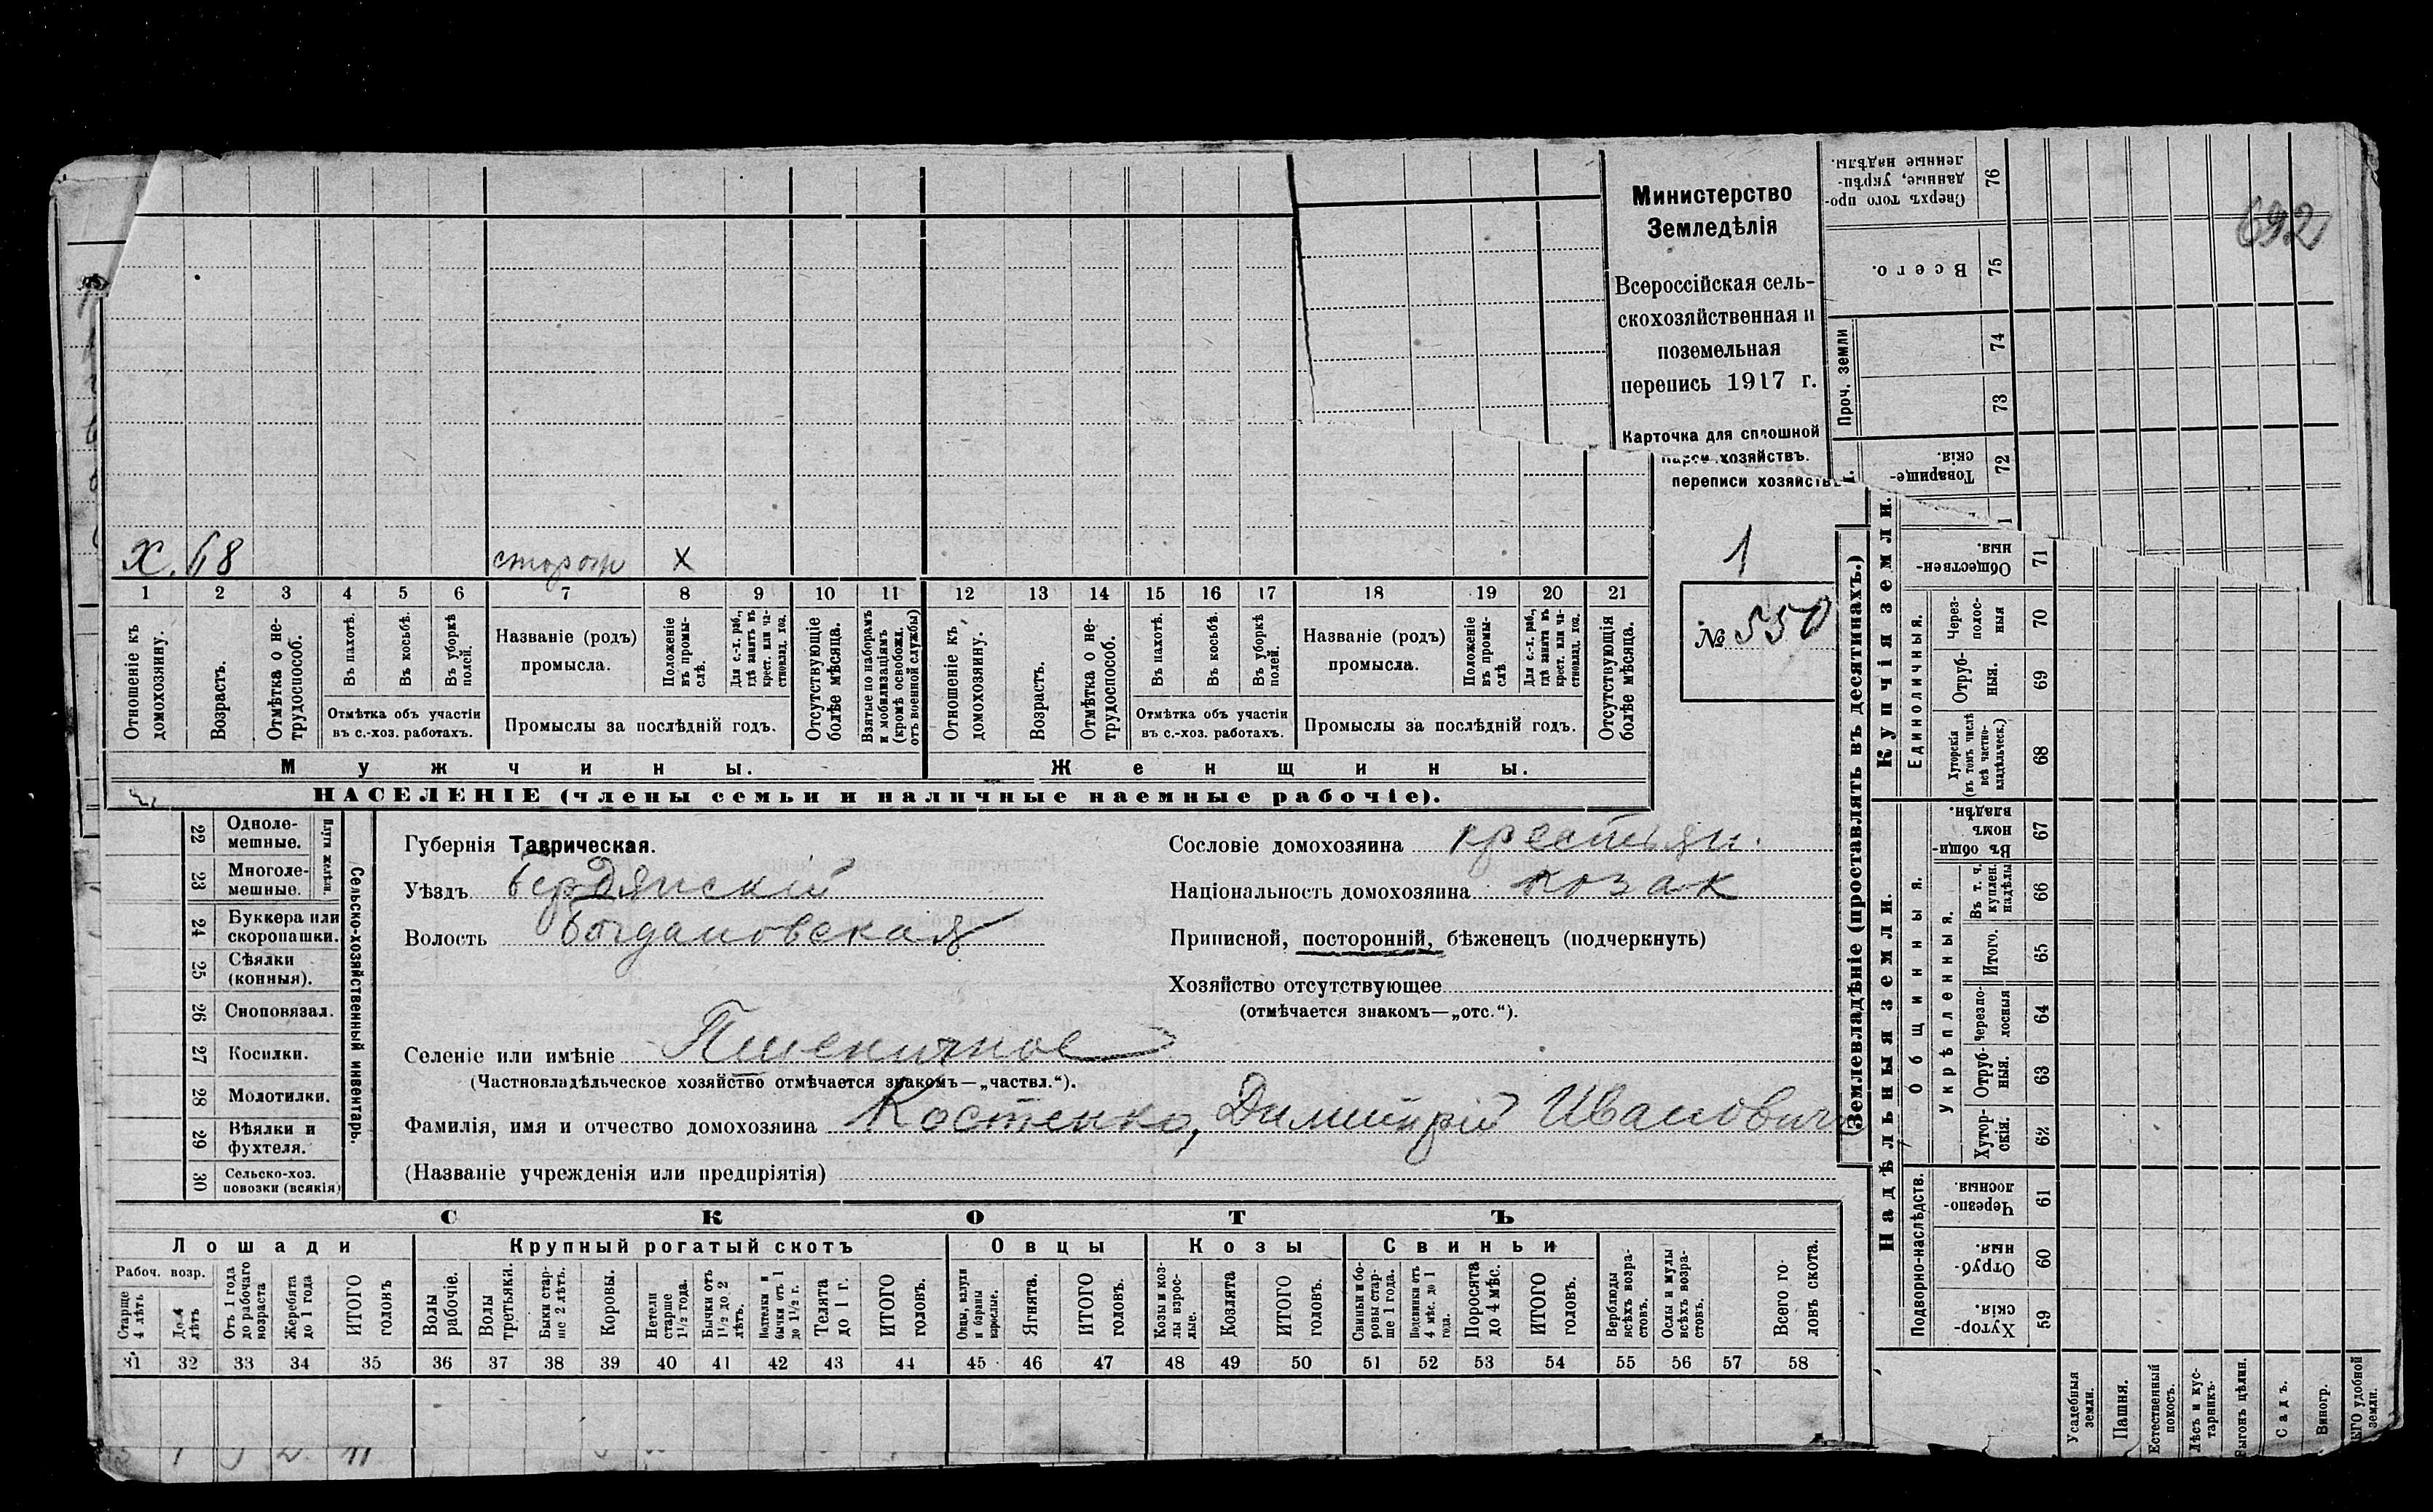 692
Министерство
Земледѣлія
Всероссійская сель-
скохозяйственная и
поземельная
перепись 1917 г.
Карточка для сплошной
переписи хозяйствъ.
1
№ 550
X. 68 сторож X
1 2 3 4 5 6 7 8 9 10 11 12 13 14 15 16 17 18 19 20 21
Отношеніе къ домохозяину.
Возрастъ.
Отмѣтка о не-трудоспособ.
Въ пахотѣ.
Въ косьбѣ.
Въ уборкѣ полей.
Отмѣтка объ участіи
въ с.-хоз. работахъ.
Названіе (родъ)
промысла.
Положеніе въ промы-слѣ.
Для с.-х. раб., гдѣ занятъ въ крест. или ча-стновлад. хоз.
Промыслы за послѣдній годъ.
Отсутствующіе болѣе мѣсяца.
Взятые по наборамъ и мобилизаціямъ (кромѣ освобожд. отъ военной службы)
Отношеніе къ домохозяину.
Возрастъ.
Отмѣтка о не-трудоспособ.
Въ пахотѣ.
Въ косьбѣ.
Въ уборкѣ полей.
Отмѣтка объ участіи
въ с.-хоз. работахъ.
Названіе (родъ)
промысла.
Положеніе въ промы-слѣ.
Для с.-х. раб., гдѣ занята въ крест. или ча-стновлад. хоз.
Промыслы за послѣдній годъ.
Отсутствующія болѣе мѣсяца.
Мужчины.
Женщины.
НАСЕЛЕНІЕ (члены семьи и наличные наемные рабочіе).
22 Одноле-мешные.
23 Многоле-мешные.
24 Буккера или скоропашки.
25 Сѣялки (конныя).
26 Сноповязал.
27 Косилки.
28 Молотилки.
29 Вѣялки и фухтеля.
30 Сельско-хоз. повозки (всякія)
Сельско-хозяйственный инвентарь.
Губернія Таврическая.
Уѣздъ Бердянскій
Волость Богдановская
Сословіе домохозяина крестьян.
Національность домохозяина козак
Приписной, посторонній, бѣженецъ (подчеркнуть)
Хозяйство отсутствующее
(отмѣчается знакомъ—„отс.“).
Селеніе или имѣніе Пшеничное
(Частновладѣльческое хозяйство отмѣчается знакомъ—„частвл.“).
Фамилія, имя и отчество домохозяина Костенко, Димитрій Иванович
(Названіе учрежденія или предпріятія)
СКОТЪ
Лошади
Крупный рогатый скотъ
Овцы
Козы
Свиньи
Рабоч. возр.
Старше 4 лѣтъ
До 4 лѣтъ
Отъ 1 года до рабочаго возраста
Жеребята до 1 года
ИТОГО головъ
Волы рабочіе.
Волы третьяки.
Быки стар-ше 2 лѣтъ.
Коровы.
Нетели старше 1½ года.
Бычки отъ 1½ до 2 лѣтъ.
Телята до 1 г.
ИТОГО головъ.
Овцы, валухи и бараны взрослые.
Ягнята.
ИТОГО головъ.
Козы и коз-лы взрос-лые.
Козлята
ИТОГО головъ.
Свиньи и бо-ровы стар-ше 1 года.
Подсвинки отъ 4 мѣс. до 1 года.
Поросята до 4 мѣс.
ИТОГО головъ.
Верблюды всѣхъ возра-стовъ.
Ослы и мулы всѣхъ возра-стовъ.
Всего го-ловъ скота.
31 32 33 34 35 36 37 38 39 40 41 42 43 44 45 46 47 48 49 50 51 52 53 54 55 56 57 58
(Землевладѣніе (проставлять въ десятинахъ.)
Надѣльныя земли.
Купчія земли.
Проч. земли
Подворно-наслѣдств.
Общинныя.
Укрѣпленныя.
Единоличныя.
Сверхъ того про-данные, укрѣп-ленные надѣлы. 76
Всего. 75
74
73
Товарище-скія. 72
Обществен-ныя. 71
Через-полос-ныя 70
Отруб-ныя. 69
Хуторскія (въ томъ числѣ всѣ частно-владѣльческ.) 68
Въ общин-номъ владѣн. 67
Въ т. ч. куплен. надѣлы 66
Итого. 65
Черезпо-лосныя 64
Отруб-ныя. 63
Хутор-скія. 62
Черезпо-лосныя. 61
Отруб-ныя. 60
Хутор-скія. 59
Усадебныя земли.
Пашня.
Естественный покосъ.
Лѣсъ и кус-тарникъ.
Выгонъ цѣлин.
Садъ.
Виногр.
удобной земли.